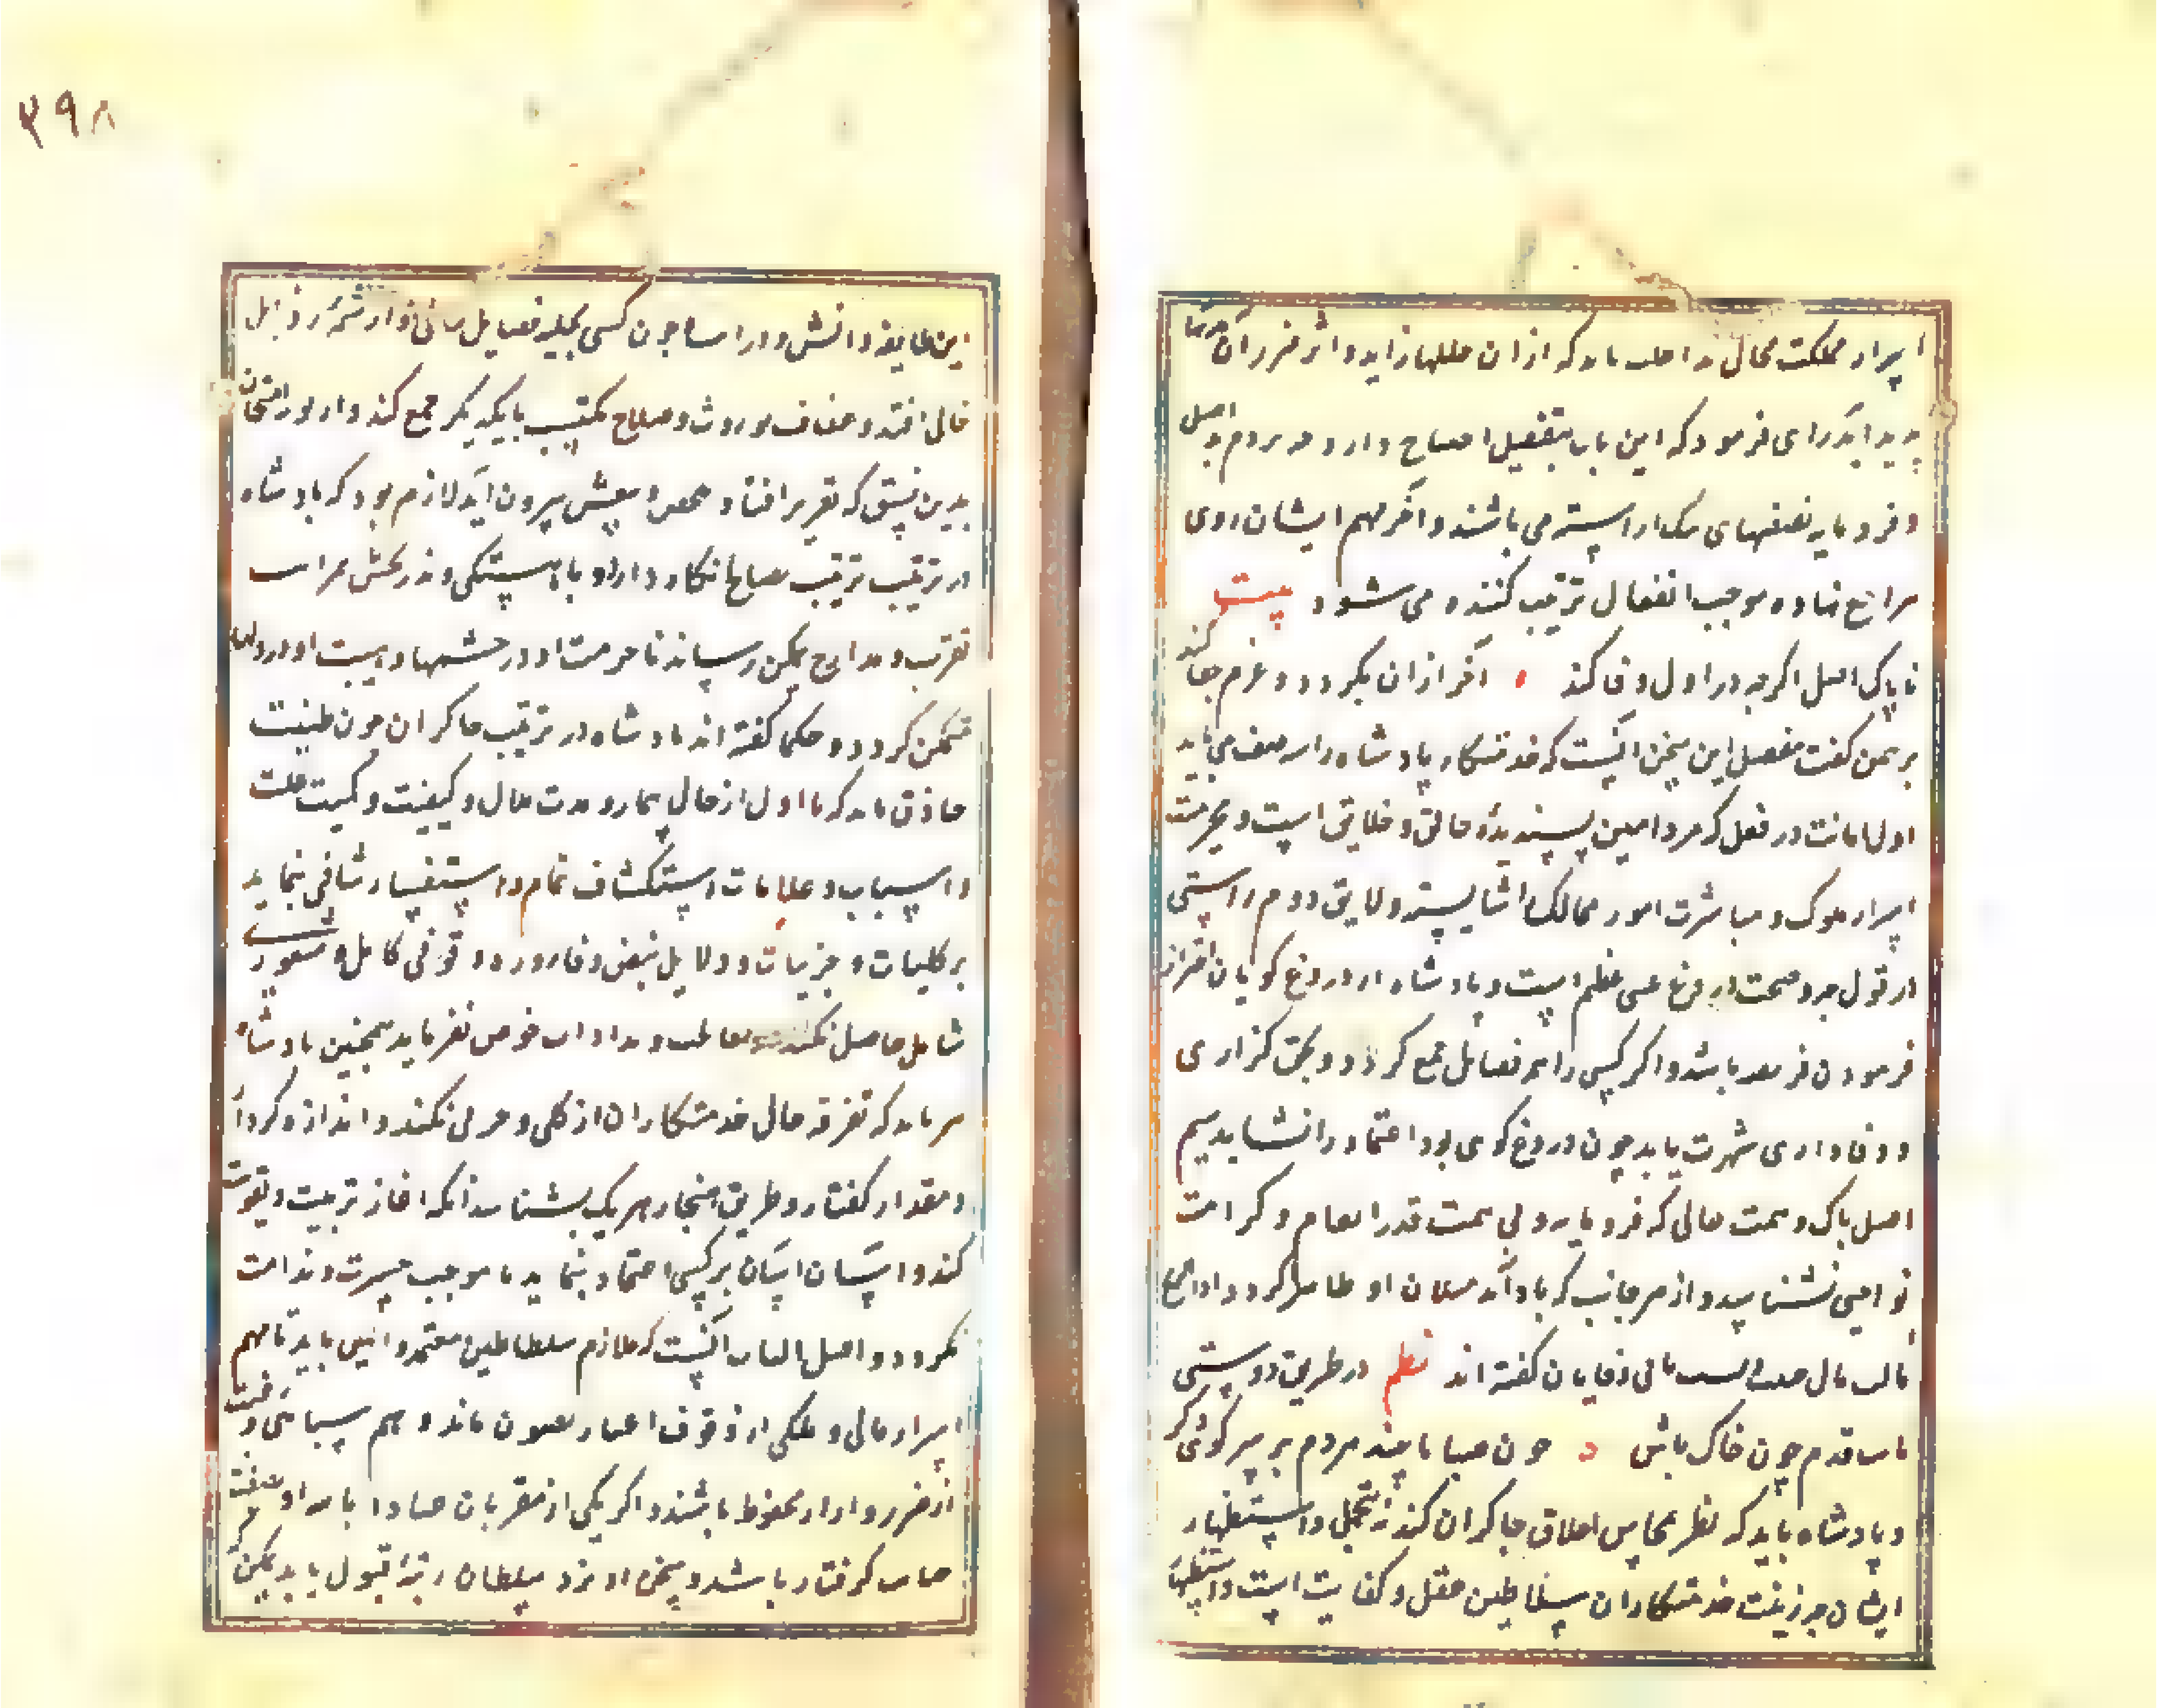 ۳۹۸
اسرار مملکت مجال مداخلت یابد که ازان خللها زاید و اثر ضرر آن
پدید آید رای فرمود که این باب بتفصیل احتیاج دارد چه مردم بد اصل
و فرومایه نصفتهای آراسته می باشند و آخر مهم ایشان روی
نهاده موجب انفعال تربیت کننده می شود بیت
ناپاک اصل اگرچه در اول وفا کند آخر ازان بگردد و عزم جفا کند
برهمن گفت مفصل این سخن آنست که خدمتکار پادشاه را سه صفت می باید
اول امانت در فعل که مرد امین پسندیده خالق و خلایق است و محرمیت
اسرار ملوک و مباشرت امور ممالک را شایسته و لایق دوم راستی
در قول چه وصمت دروغ عیبی عظیم است و پادشاه از دروغ گویان احتراز
فرمودن فرض باشد و اگر کسی را همه فضایل جمع گردد و بحق گزاری
و وفاداری شهرت یابد چون دروغ گوی بود اعتماد را نشاید سیم
اصل پاک و همت عالی که فرومایه و بی همت قدر انعام و کرامت
نواحی نشناسد و از هر جانب که باد آید میلان او ظاهر گردد
گفته اند نظم در طریق دوستی
ثابت قدم چون خاک باش چون صبا تا چند مردم بر سر کوئی دگر
و پادشاه باید که نظر بمحاسن اخلاق چاکران کند نه بتجمل و استظهار
ایشان چه زینت خدمتکاران سلاطین عقل و کفایت است و استظهار
این طایفه دانش و درایت چون کسی بحلیه فضایل از رذایل
خالی افتد و عفاف موروث و صلاح مکتسب با یکدیگر جمع کند و در امتحان
بدین نسق که تقریر افتاد بیرون آید لازم بود که پادشاه
در ترتیب تربیت نگاه دارد و باهستگی و تدریجش بمراتب
تقرب و مدارج تمکن رساند تا حرمت او در چشمها و هیبت او در دلها
متمکن گردد و حکما گفته اند پادشاه در تربیت چاکران چون طبیب
حاذق باید که تا اول از حال بیمار و مدت و کیفیت و کمیت علت
و اسباب و علامات استکشاف تمام و استفسار شافی ننماید
بر کلیات و جزییات و دلایل نبض و قاروره وقوفی کامل و شعوری
شامل حاصل نکند در معالجت و مداوات خوض نفرماید همچنین پادشاه
نیز باید که تعرف حال خدمتکاران از کلی و جزئی بکند و اندازه کردار
و مقدار گفتار و طریق هنجار هر یک بشناسد آنکه آغاز تربیت و تقویت
کند و آسان آسان بر کسی اعتماد ننماید تا موجب حسرت و ندامت
نگردد و اصل الباب آنست که ملازم سلاطین معتمد و امین باید تا هم
اسرار مالی و ملکی از وقوف اغیار مصون ماند و هم سپاهی و رعیت
از ضرر و آزار محفوظ باشند و اگر یکی از مقربان
گرفتار باشد و سخن او نزد سلطان رتبه قبول یابد ممکن که